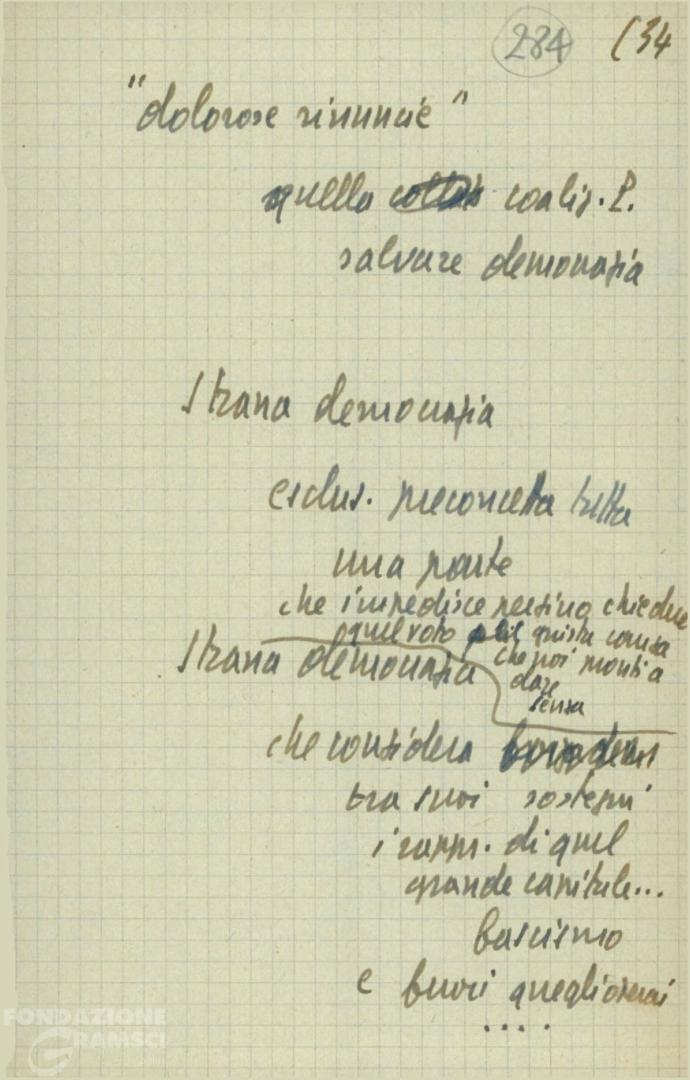 284 (34
"dolorose rinuncie"
quella coaliz. P.
salvare democrazia
Strana democrazia
esclus. preconcetta tutta
una parte
che impedisce persino chiedere
quel voto giusta causa
che poi pronti a
dare
senza
Strana democrazia
che considera
tra suoi sostegni
i rapp. di quel
grande capitale...
fascismo
e fuori quegli operai
....
FONDAZIONE
GRAMSCI